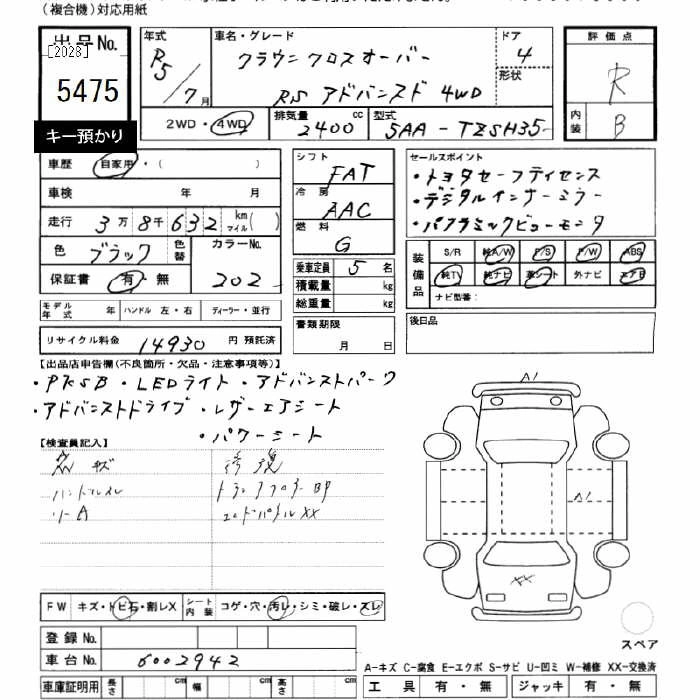 (複合機)対応用紙
出品No.
[2023]
5475
キー預かり
年式 車名・グレード ドア 評価点
R5/7月 クラウンクロスオーバー 4
RS アドバンスド 4WD 形状 R
2WD・4WD 排気量 2400 cc 型式 5AA-TZSH35 内装 B
車歴 自家用・( )
車検 年 月
走行 3万8千632 km マイル( )
色 ブラック 色替 カラーNo. 202
保証書 有・無
シフト FAT
冷房 AAC
燃料 G
乗車定員 5名
積載量 kg
総重量 kg
書類期限 月 日
セールスポイント
・トヨタセーフティセンス
・デジタルインナーミラー
・パノラミックビューモニタ
装備品 S/R 純A/W P/S P/W ABS
純TV 純ナビ 革シート 外ナビ エアB
ナビ型番:
後日品
モデル年式 年 ハンドル 左・右 ディーラー・並行
リサイクル料金 14930 円 預託済
【出品店申告欄(不良箇所・欠品・注意事項等)】
・PKSB ・LEDライト ・アドバンストパーク
・アドバンストドライブ ・レザーエアシート
・パワーシート
【検査員記入】
キズ 修復
トランクフロアーBP
リーA エンドパネルXX
A1
A1
XX
FW キズ・トビ石・割レX シート内装 コゲ・穴・汚レ・シミ・破レ・スレ
登録No.
車台No. 6002942
車庫証明用 長さ cm 幅 cm 高さ cm
スペア
A-キズ C-腐食 E-エクボ S-サビ U-凹ミ W-補修 XX-交換済
工具 有・無 ジャッキ 有・無